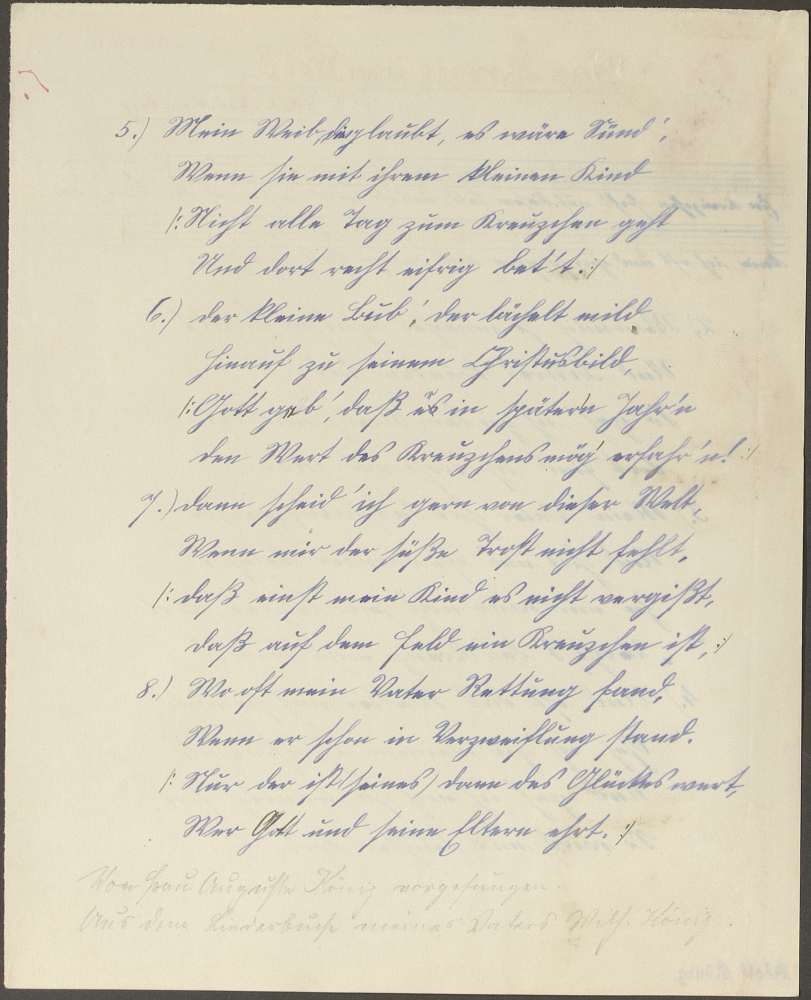 5.) Mein Weib, die glaubt, es wäre Sünd',
Wenn sie mit ihrem kleinen Kind
/: Nicht alle Tag zum Kreuzchen geht
Und dort recht eifrig bet't. :/
6.) Der kleine Bub', der lächelt mild
Hinauf zu seinem Christusbild,
/: Gott geb', daß es in spätern Jahr'n
Den Wert des Kreuzchens mög' erfahr'n! :/
7.) Dann scheid' ich gern von dieser Welt,
Wenn mir der süße Trost nicht fehlt,
/: Daß einst mein Kind es nicht vergißt,
Daß auf dem Feld ein Kreuzchen ist, :/
8.) Wo oft mein Vater Rettung fand,
Wenn er schon in Verzweiflung stand.
/: Nur der ist (seines) dann des Glückes wert,
Wer Gott und seine Eltern ehrt. :/
Von Frau Auguste König vorgesungen.
Aus dem Liederbuche meines Vaters Wilh. König.